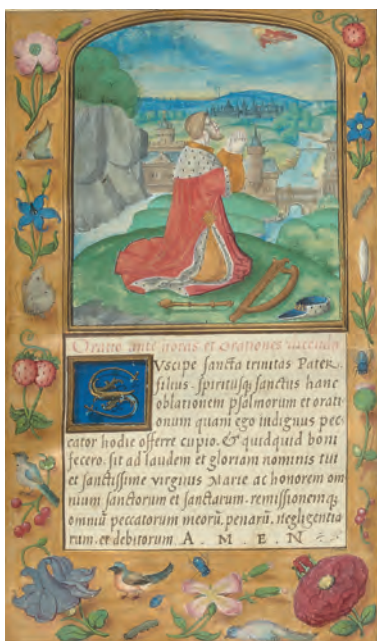 Oratio ante horas et orationes dicenda
SVscipe sancta trinitas Pater.
filius. spiritusq; sanctus hanc
oblationem psalmorum et orati-
onum quam ego indignus pec-
cator hodie offerre cupio. & quidquid boni
fecero. sit ad laudem et gloriam nominis tui
et sanctissime virginis Marie ac honorem om
nium sanctorum et sanctarum. remissionemq;
omniū peccatorum meorū. penarū. negligentia
rum. et debitorum A. M. E. N